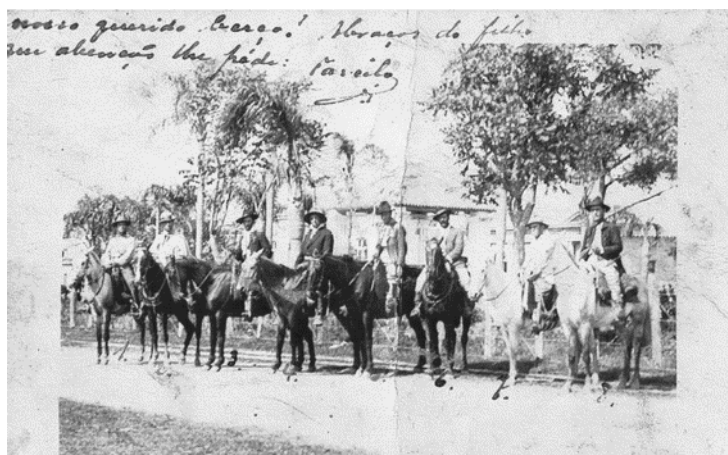 nosso querido berço! Abraços do filho
que abenção lhe péde: